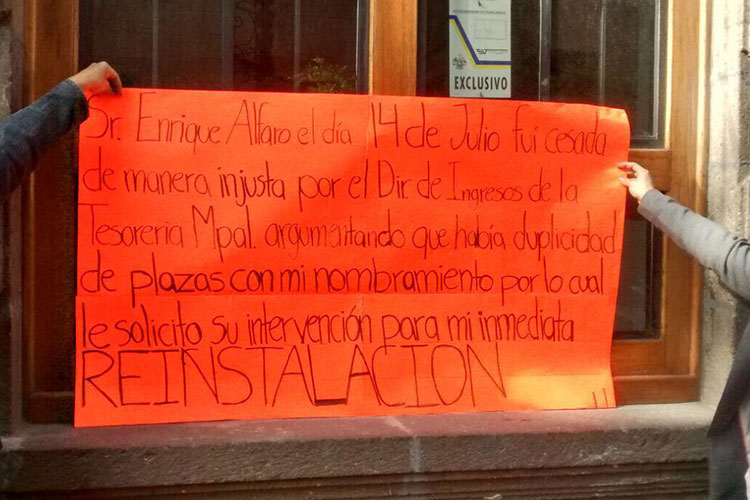 EXCLUSIVO
Sr. Enrique Alfaro el día 14 de Julio fui cesada
de manera injusta por el Dir. de Ingresos de la
Tesoreria Mpal. argumentando que había duplicidad
de plazas con mi nombramiento por lo cual
le solicito su intervención para mi inmediata
REINSTALACION